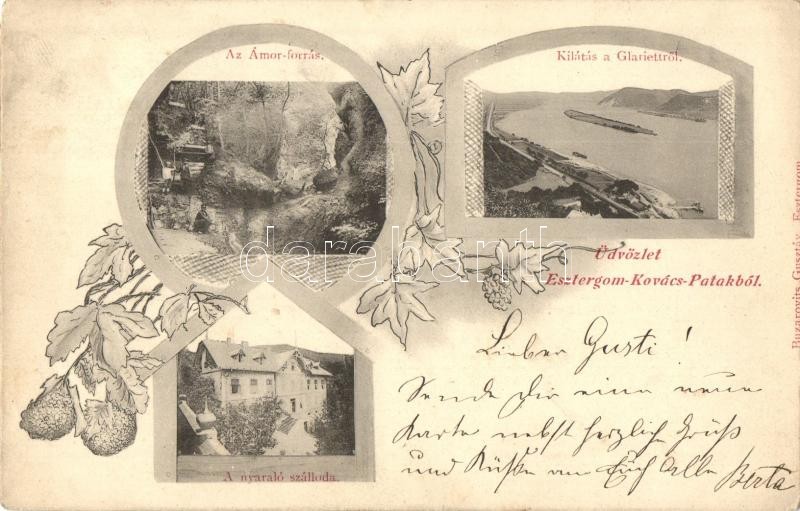 Az Ámor-forrás.
Kilátás a Glariettről.
Üdvözlet
Esztergom-Kovács-Patakból.
A nyaraló szálloda.
Buzarovits Gusztáv, Esztergom
darabanth
Lieber Gusti!
Sende Dir eine neue
Karte nebst herzliche Grüß
und Küße an Euch Alle Berta